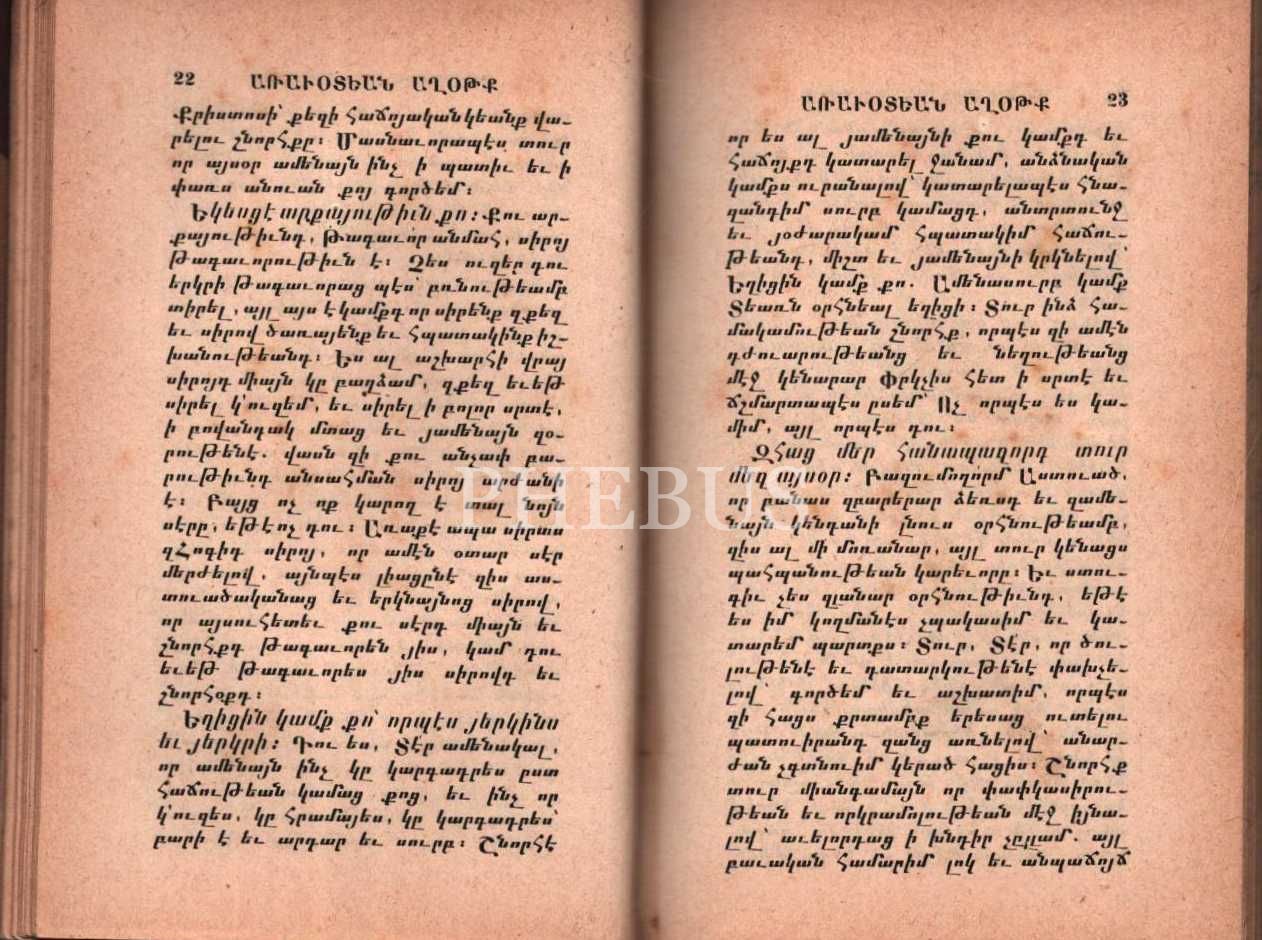 22 ԱՌԱՒՕՏԵԱՆ ԱՂՕԹՔ
Քրիստոսի՝ քեզի հաճոյական կեանք վա-
րելու շնորհքը։ Մասնաւորապէս տուր
որ այսօր ամենայն ինչ ի պատիւ եւ ի
փառս անուան քոյ գործեմ։
Եկեսցէ արքայութիւն քո։ Քու ար-
քայութիւնդ, Թագաւոր անմահ, սիրոյ
թագաւորութիւն է։ Չես ուզեր դու
երկրի թագաւորաց պէս՝ բռնութեամբ
տիրել, այլ այս է կամքդ որ սիրենք զքեզ
եւ սիրով ծառայենք եւ հպատակինք իշ-
խանութեանդ։ Ես ալ աշխարհի վրայ
սիրոյդ միայն կը բաղձամ, զքեզ եւեթ
սիրել կ՚ուզեմ, եւ սիրել ի բոլոր սրտէ,
ի բովանդակ մտաց եւ յամենայն զօ-
րութենէ. վասն զի քու անչափ բա-
րութիւնդ անսահման սիրոյ արժանի
է։ Բայց ոչ ոք կարող է տալ նոյն
սէրը, եթէ ոչ դու։ Առաքէ ապա սիրտս
զՀոգիդ սիրոյ, որ ամէն օտար սէր
մերժելով, այնպէս լիացընէ զիս աս-
տուածականաց եւ երկնայնոց սիրով,
որ այսուհետեւ քու սէրդ միայն եւ
շնորհքդ թագաւորեն յիս, կամ դու
եւեթ թագաւորես յիս սիրովդ եւ
շնորհօքդ։
Եղիցին կամք քո՝ որպէս յերկինս
եւ յերկրի։ Դու ես, Տէր ամենակալ,
որ ամենայն ինչ կը կարգադրես ըստ
հաճութեան կամաց քոց, եւ ինչ որ
կ՚ուզես, կը հրամայես, կը կարգադրես՝
բարի է եւ արդար եւ սուրբ։ Շնորհէ
ԱՌԱՒՕՏԵԱՆ ԱՂՕԹՔ 23
որ ես ալ յամենայնի քու կամքդ եւ
հաճոյքդ կատարել ջանամ, անձնական
կամքս ուրանալով՝ կատարելապէս հնա-
զանդիմ սուրբ կամացդ, անտրտունջ
եւ յօժարակամ հպատակիմ հաճու-
թեանդ, միշտ եւ յամենայնի կրկնելով՝
Եղիցին կամք քո. Ամենասուրբ կամք
Տեառն օրհնեալ եղիցի։ Տուր ինձ հա-
մակամութեան շնորհք, որպէս զի ամէն
դժուարութեանց եւ նեղութեանց
մէջ կենարար Փրկչիս հետ ի սրտէ եւ
ճշմարտապէս ըսեմ՝ Ոչ որպէս ես կա-
միմ, այլ որպէս դու։
ԶՀաց մեր հանապազորդ տուր
մեզ այսօր։ Բազումողորմ Աստուած,
որ բանաս զբարերար ձեռսդ եւ զամե-
նայն կենդանի լնուս օրհնութեամբ,
զիս ալ մի մոռանար, այլ տուր կենացս
պահպանութեան կարեւորը։ Եւ ստու-
գիւ չես զլանար օրհնութիւնդ, եթէ
ես իմ կողմանէս չպակասիմ եւ կա-
տարեմ պարտքս։ Տուր, Տէր, որ ծու-
լութենէ եւ դատարկութենէ փախչե-
լով՝ գործեմ եւ աշխատիմ, որպէս
զի հացս քրտամբք երեսաց ուտելու
պատուիրանդ զանց առնելով՝ անար-
ժան չգտնուիմ կերած հացիս։ Շնորհք
տուր միանգամայն որ փափկասիրու-
թեան եւ որկրամոլութեան մէջ իյնա-
լով՝ աւելորդաց ի խնդիր չըլլամ. այլ
բաւական համարիմ լոկ եւ անպաճոյճ
PHEBUS